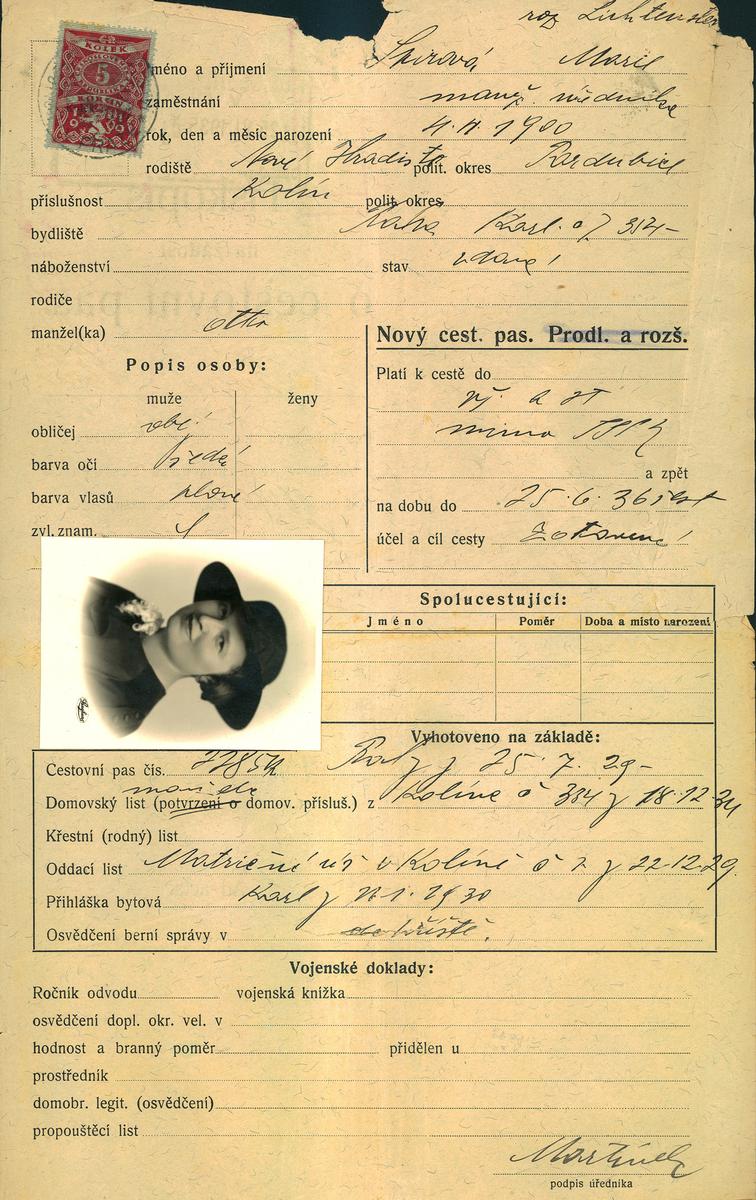 roz
KOLEK
5
KORUN
Jméno a příjmení Marie
zaměstnání manž. úředníka
rok, den a měsíc narození 1900
rodiště Nové Hradiště polit. okres Pardubice
příslušnost Kolín polit. okres
bydliště Praha Karl. č 7 354
náboženství stav vdaná
rodiče
manžel(ka) Otto
Nový cest. pas. Prodl. a rozš.
Popis osoby:
Platí k cestě do
muže ženy
obličej obl.
mimo
barva očí šedé
a zpět
barva vlasů plavé
na dobu do 25.6.36
zvl. znam.
účel a cíl cesty Zotavení
Spolucestující:
Jméno Poměr Doba a místo narození
Vyhotoveno na základě:
Cestovní pas čís. z 25.7.29
manžela
Domovský list (potvrzení o domov. přísluš.) z Kolína č 384 z 18.12.34
Křestní (rodný) list
Oddací list Matriční úř v Kolíně č 2 z 22.12.29.
Přihláška bytová Karl z 1930
Osvědčení berní správy v
Vojenské doklady:
Ročník odvodu vojenská knížka
osvědčení dopl. okr. vel. v
hodnost a branný poměr přidělen u
prostředník
domobr. legit. (osvědčení)
propouštěcí list
Martínek
podpis úředníka